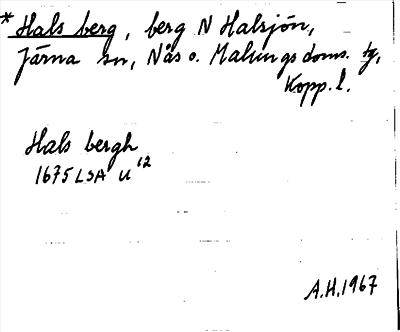 * Hals berg, berg N Halsjön,
Järna sn, Nås o. Malungs doms. tg,
Kopp. l.
Hals bergh
1675 LSA U 12
A.H. 1967